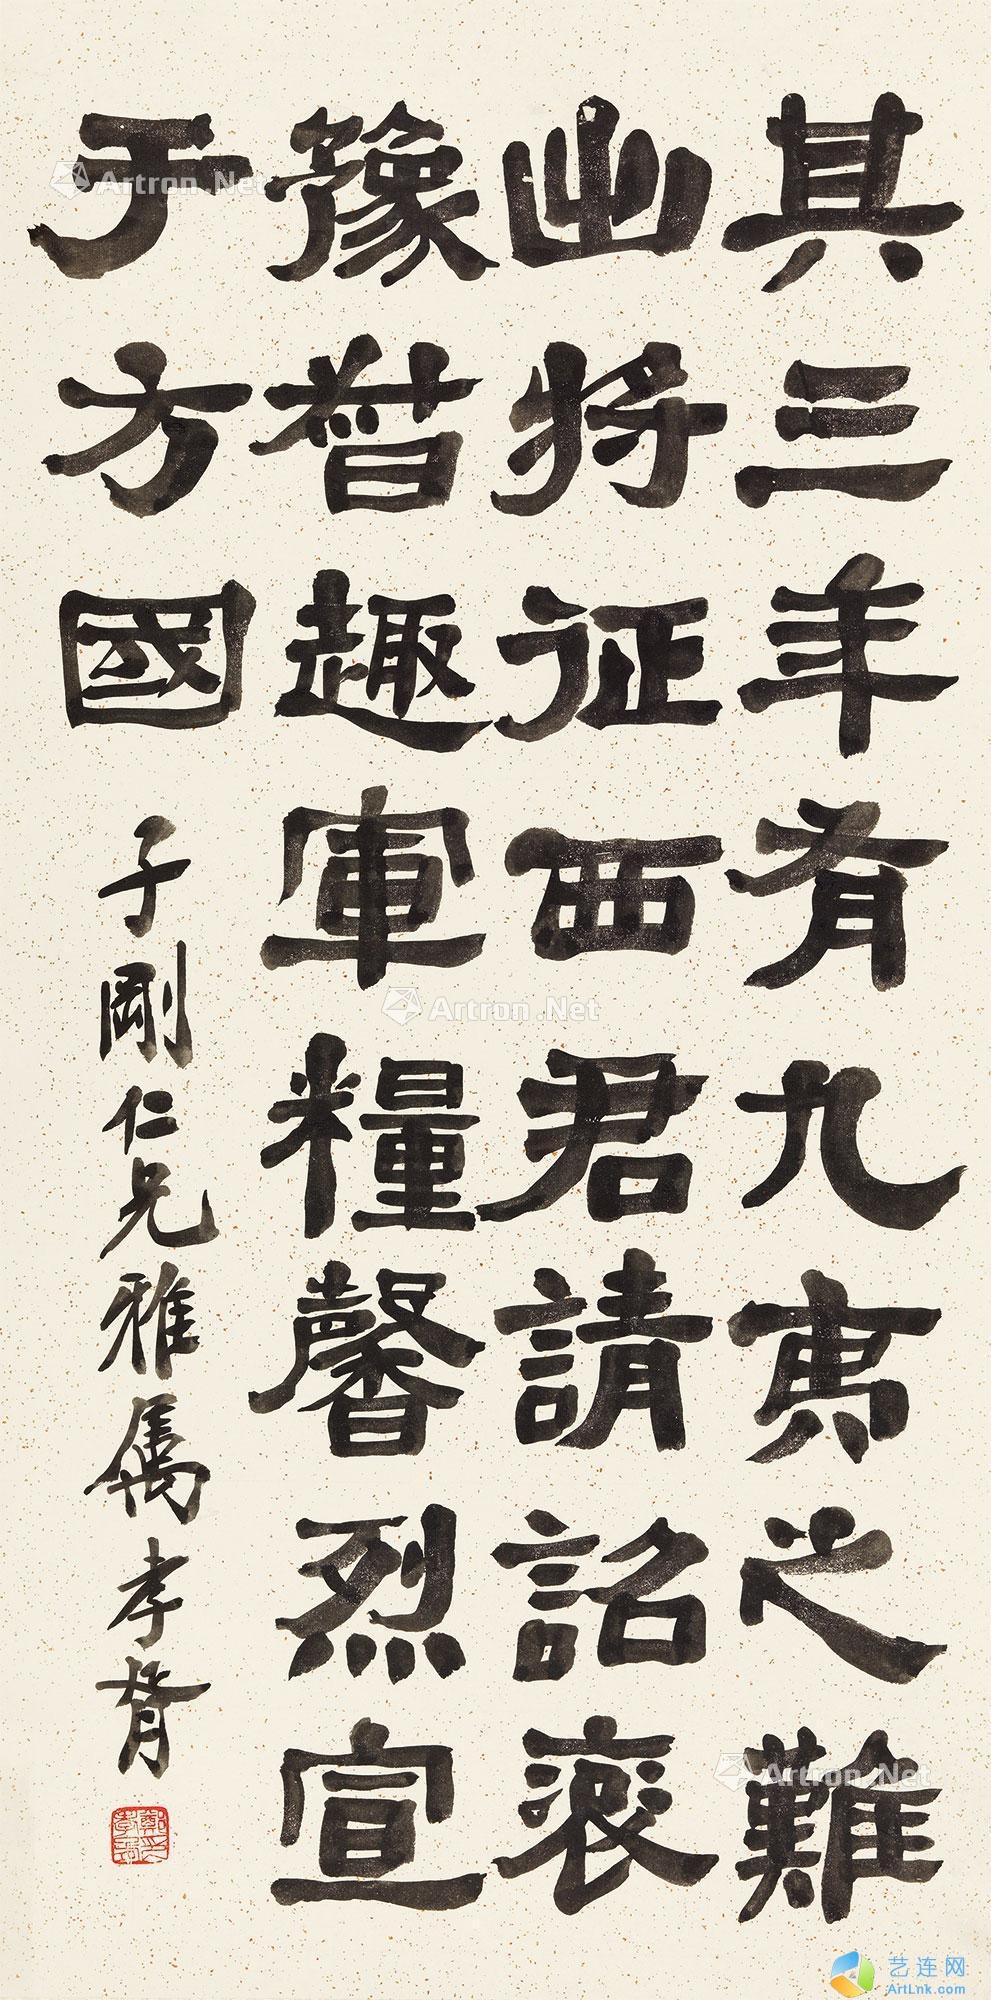 其三年有九之難
出將征西君請詔
豫趣軍糧馨烈宣
于方國
子剛仁兄雅屬孝胥
Artron.Net
Artron.Net
Artron.Net
艺连网
ArtLnk.com